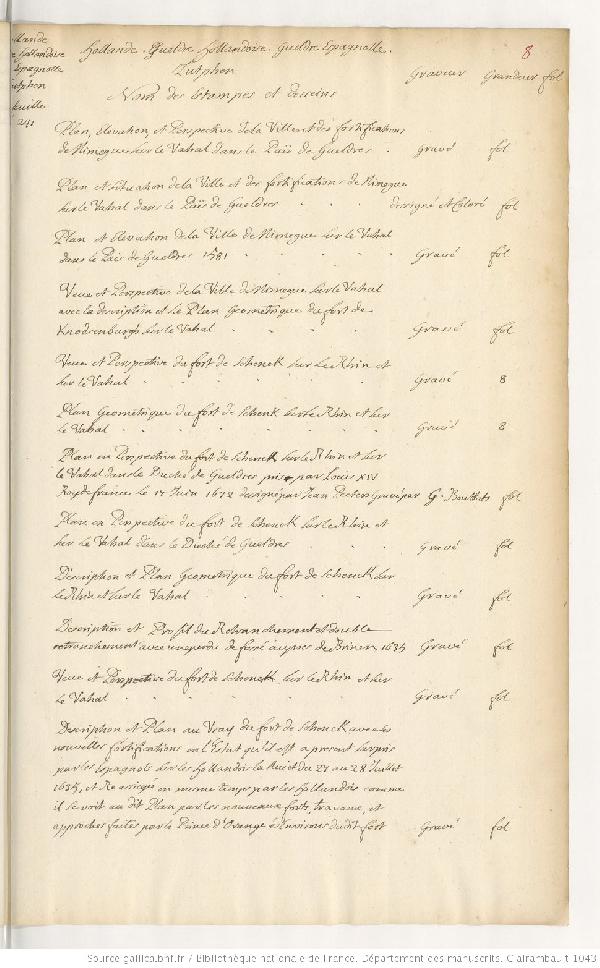 Hollande
Hollandoise
Espagnolle
Zutphen
feuille
241
Hollande. Gueldre Hollandoise. Gueldre Espagnolle.
Zutphen
8
Noms des Estampes et desseins
Graveur Grandeur fol
Plan, Elevation, et Perspective de la Ville et des fortifications
de Nimegue sur le Vahal dans le Païs de Gueldres . Gravé fol
Plan et situation de la Ville et des fortifications de Nimegue
sur le Vahal dans le Païs de Gueldres . . dessigné et Coloré fol
Plan et elevation de la Ville de Nimegue sur le Vahal
dans le Païs de Gueldres 1581 . . . Gravé fol
Veue et Perspective de la Ville de Nimegue sur le Vahal
avec la description et le Plan Geometrique du fort de
Knodsenburgh sur le Vahal . . . . Gravé fol
Veue et Perspective du fort de Schenck sur le Rhin et
sur le Vahal . . . . . Gravé 8
Plan Geometrique du fort de Schenk sur le Rhin et sur
le Vahal . . . . . Gravé 8
Plan en Perspective du fort de Schenck sur le Rhin et sur
le Vahal dans le Duché de Gueldres pris par Louis XIV
Roy de france le Juin 1672 designé par Jean Peeters Gravé par G. Bouttats fol
Plan en Perspective du fort de Schenck sur le Rhin et
sur le Vahal dans le Duché de Gueldres . . Gravé fol
Description et Plan Geometrique du fort de Schenck sur
le Rhin et sur le Vahal . . . . Gravé fol
Description et Profil du Retranchement et double
retranchement avec de 1635 Gravé fol
Veue et Perspective du fort de Schenck sur le Rhin et sur
le Vahal . . . . . Gravé fol
Description et Plan au Vray du fort de Schenck avec les
nouvelles fortifications en l'Estat qu'il est a present surpris
par les Espagnols sur les Hollandois la Nuict du 27 au 28 Juillet
1635, et Reassiegé en mesme temps par les Hollandois comme
il se voit au dit Plan par les nouveaux forts, travaux, et
approches faites par le Prince d'Orange a l'environs du dit fort Gravé fol
Source gallica.bnf.fr / Bibliothèque nationale de France. Département des manuscrits. Clairambault 1043